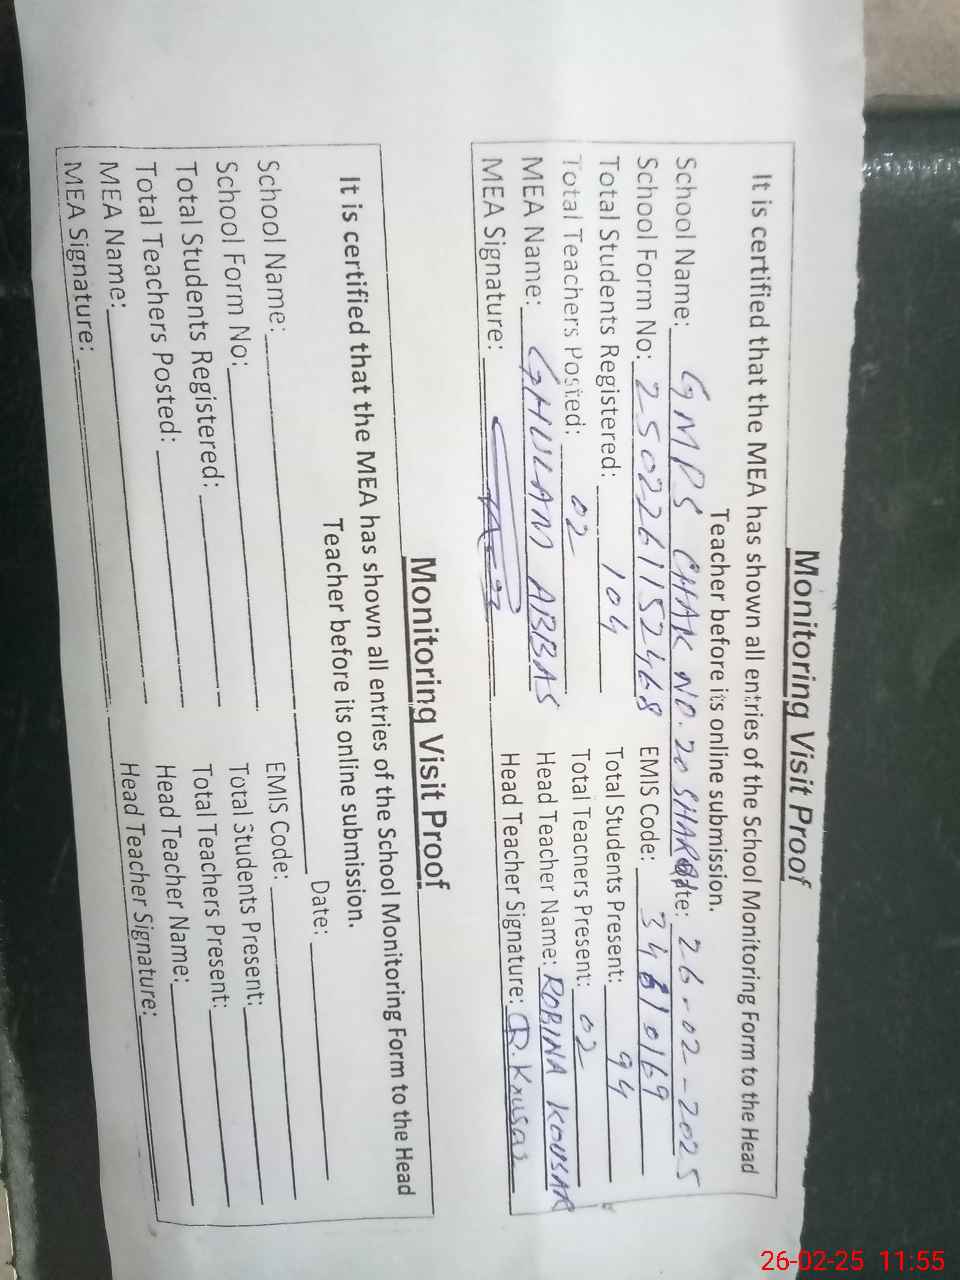 Monitoring Visit Proof
It is certified that the MEA has shown all entries of the School Monitoring Form to the Head
Teacher before its online submission.
School Name: GMPS CHAK NO. 20 SHARQI Date: 26-02-2025
School Form No: 2502261152468 EMIS Code: 34610169
Total Students Registered: 104 Total Students Present: 94
Total Teachers Posted: 02 Total Teachers Present: 02
MEA Name: GHULAM ABBAS Head Teacher Name: ROBINA KOUSAR
MEA Signature: Head Teacher Signature: R. Kausar
Monitoring Visit Proof
It is certified that the MEA has shown all entries of the School Monitoring Form to the Head
Teacher before its online submission.
School Name: Date:
School Form No: EMIS Code:
Total Students Registered: Total Students Present:
Total Teachers Posted: Total Teachers Present:
MEA Name: Head Teacher Name:
MEA Signature: Head Teacher Signature:
26-02-25 11:55